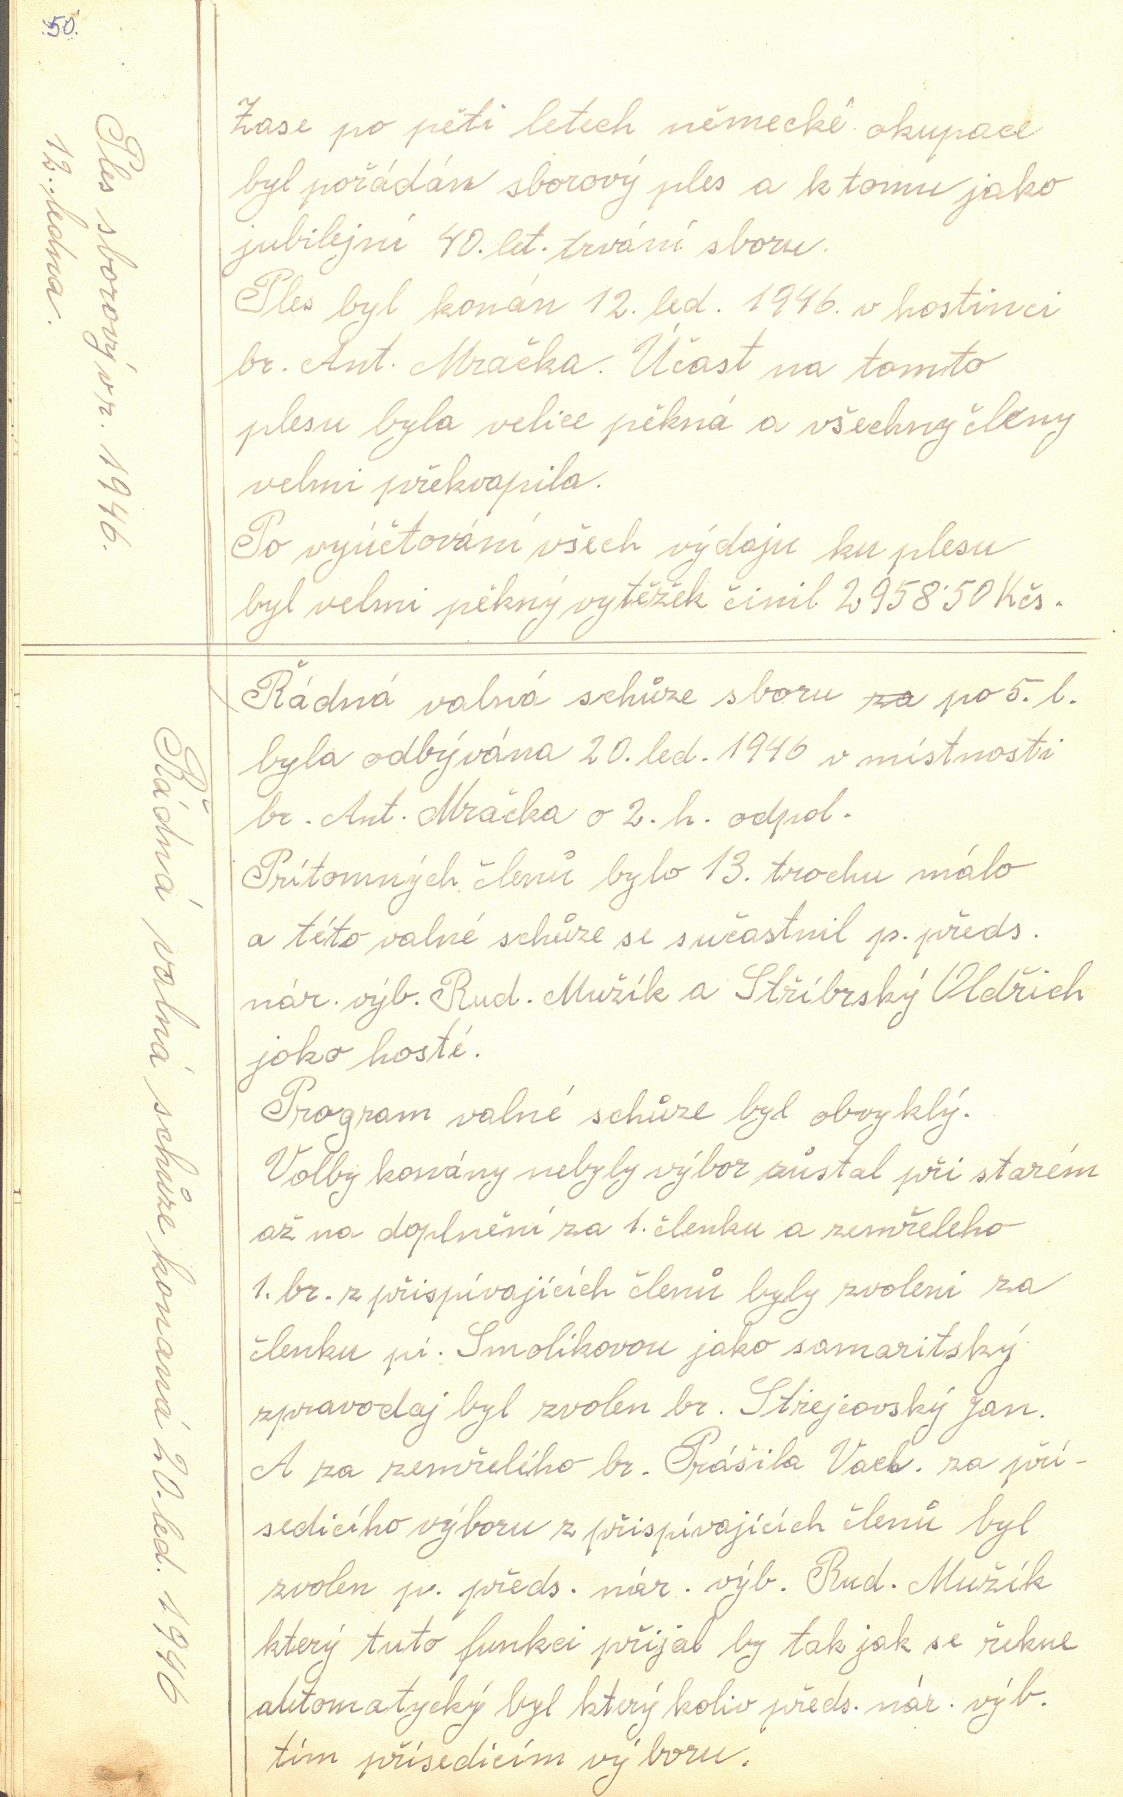 50.
Ples sborový v r. 1946.
12. ledna.
Zase po pěti letech německé okupace
byl pořádán sborový ples a k tomu jako
jubilejní 40. let. trvání sboru.
Ples byl konán 12. led. 1946. v hostinci
br. Ant. Mračka. Účast na tomto
plesu byla velice pěkná a všechny členy
velmi překvapila.
Po vyúčtování všech výdaju ku plesu
byl velmi pěkný vytěžek činil 2958·50 Kčs.
Řádná valná schůze konaná 20. led. 1946
Řádná valná schůze sboru za po 5. l.
byla odbývána 20. led. 1946 v místnosti
br. Ant. Mračka o 2. h. odpol.
Prítomných členů bylo 13. trochu málo
a této valné schůze se sučastnil p. předs.
nár. výb. Rud. Mužík a Stříbrský Oldřich
joko hosté.
Program valné schůze byl obvyklý.
Volby konány nebyly výbor zůstal při starém
až na doplnění za 1. členku a zemřeleho
1. br. z přispívajících členů byly zvoleni za
členku pí. Smolíkovou jako samaritský
zpravodaj byl zvolen br. Střejcovský Jan.
A za zemřelého br. Prášila Vacl. za pří-
sedícího výboru z přispívajících členů byl
zvolen p. předs. nár. výb. Rud. Mužík
který tuto funkci přijal by tak jak se řekne
automatycký byl který koliv předs. nár. výb.
tím přísedícím výboru.